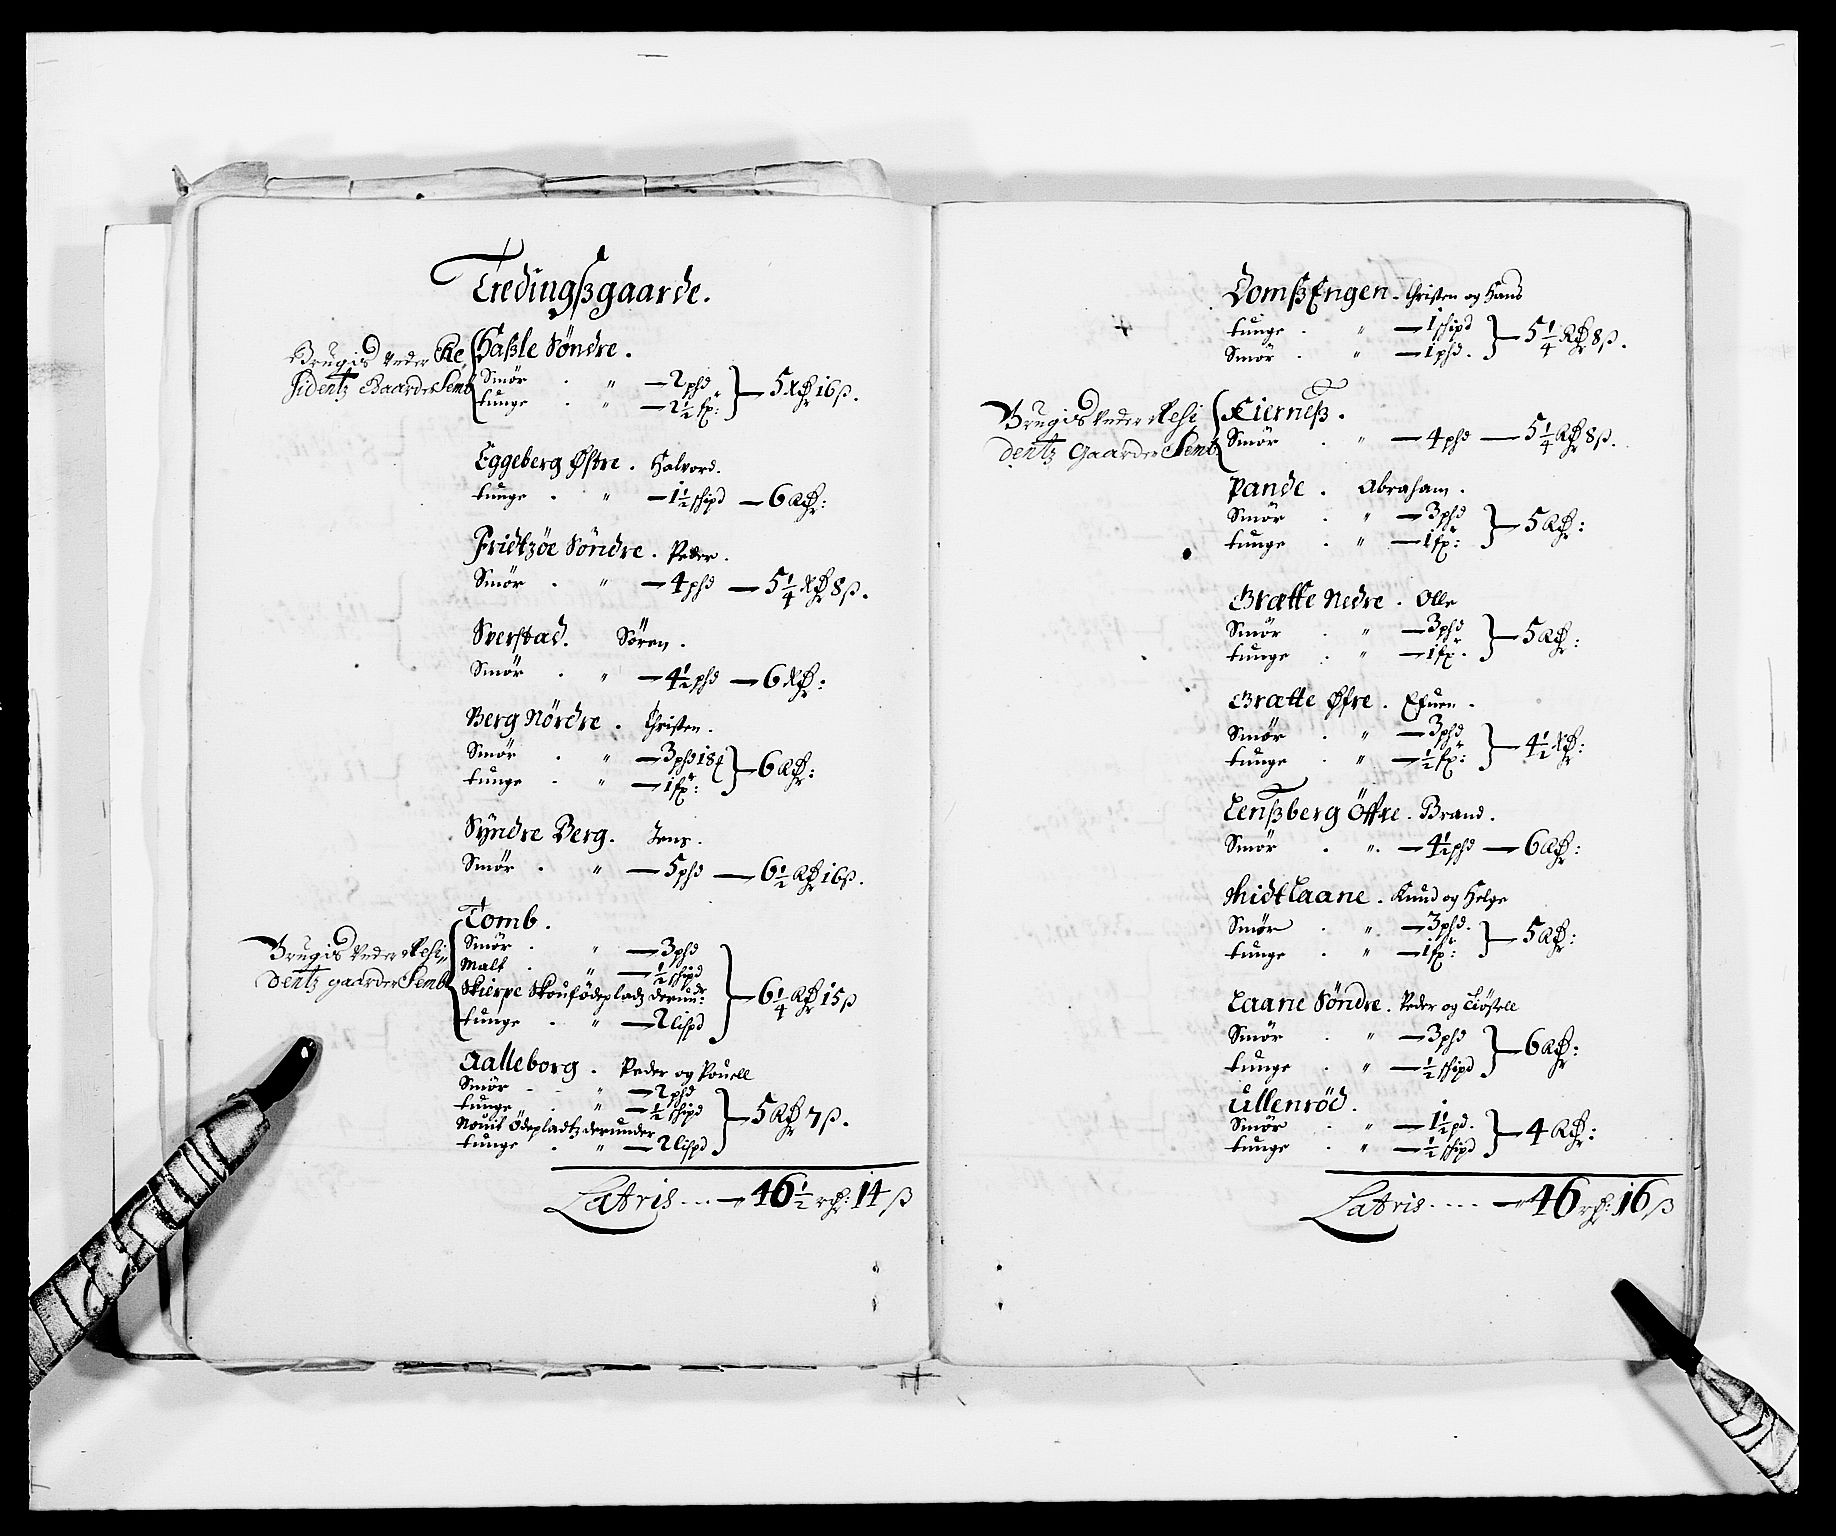 Tredingßgaarde.
Brugis Under Re
sidentz Gaarden Semb
Haßle Söndre.
Smör . " — 2 phd
tunge . " — 2½ fr: } — 5 Rdr 16 ß.
Eggeberg Øfre. Halvord.
tunge . " — 1½ schipd — 6 Rdr:
Fridtzöe Söndre. Peder.
Smör . " — 4 phd — 5¼ Rdr 8 ß.
Sverstad. Sören.
Smör . " — 4½ phd — 6 Rdr:
Berg Nördre. Christen.
Smör . " — 3 phd 18 f
tunge . " — 1 fr: } — 6 Rdr:
Syndre Berg. Jens.
Smör . " — 5 phd — 6½ Rdr 16 ß.
Brugis Under Resi,,
dentz gaarden Semb
Tomb.
Smör . " — 3 phd
Malt . " — ½ schipd
Skierpe Skouföde pladtz derund:
tunge . " — 2 lispd } — 6¼ Rdr 15 ß
Aalleborg. Peder og Pouell
Smör . " — 2 phd
tunge . " — ½ schipd
Ødepladtz derunder
tunge . " — 2 lispd } — 5 Rdr 7 ß.
Latris .... — 46½ rdr: 14 ß
Domß Engen. Christen og Hans
tunge . " — 1 schipd
Smör . " — 1 phd. } — 5¼ Rdr 8 ß.
Brugis Under Resi
dentz Gaarden Semb
Kierneß.
Smör . " — 4 phd — 5¼ Rdr 8 ß.
Pande. Abraham.
Smör . " — 3 phd
tunge . " — 1 fr: } — 5 Rdr:
Brætte Nedre. Olle
Smör . " — 3 phd
tunge . " — 1 fr. } — 5 Rdr:
Brætte Øfre. Efuen.
Smör . " — 3 phd
tunge . " — ½ fr: } — 4½ Rdr:
Lenßberg Öffre. Brand.
Smör . " — 4½ phd — 6 Rdr:
Midtlaane. Knud og Helge
Smör . " — 3 phd.
tunge . " — 1 fr: } — 5 Rdr:
Laane Söndre. Peder og Kiöstell
Smör . " — 3 phd
tunge . " — ½ schipd } — 6 Rdr:
Ullenröd.
Smör . " — 1½ pd.
tunge . " — ½ schipd } — 4 Rdr:
Latris .... — 46 rdr: 16 ß